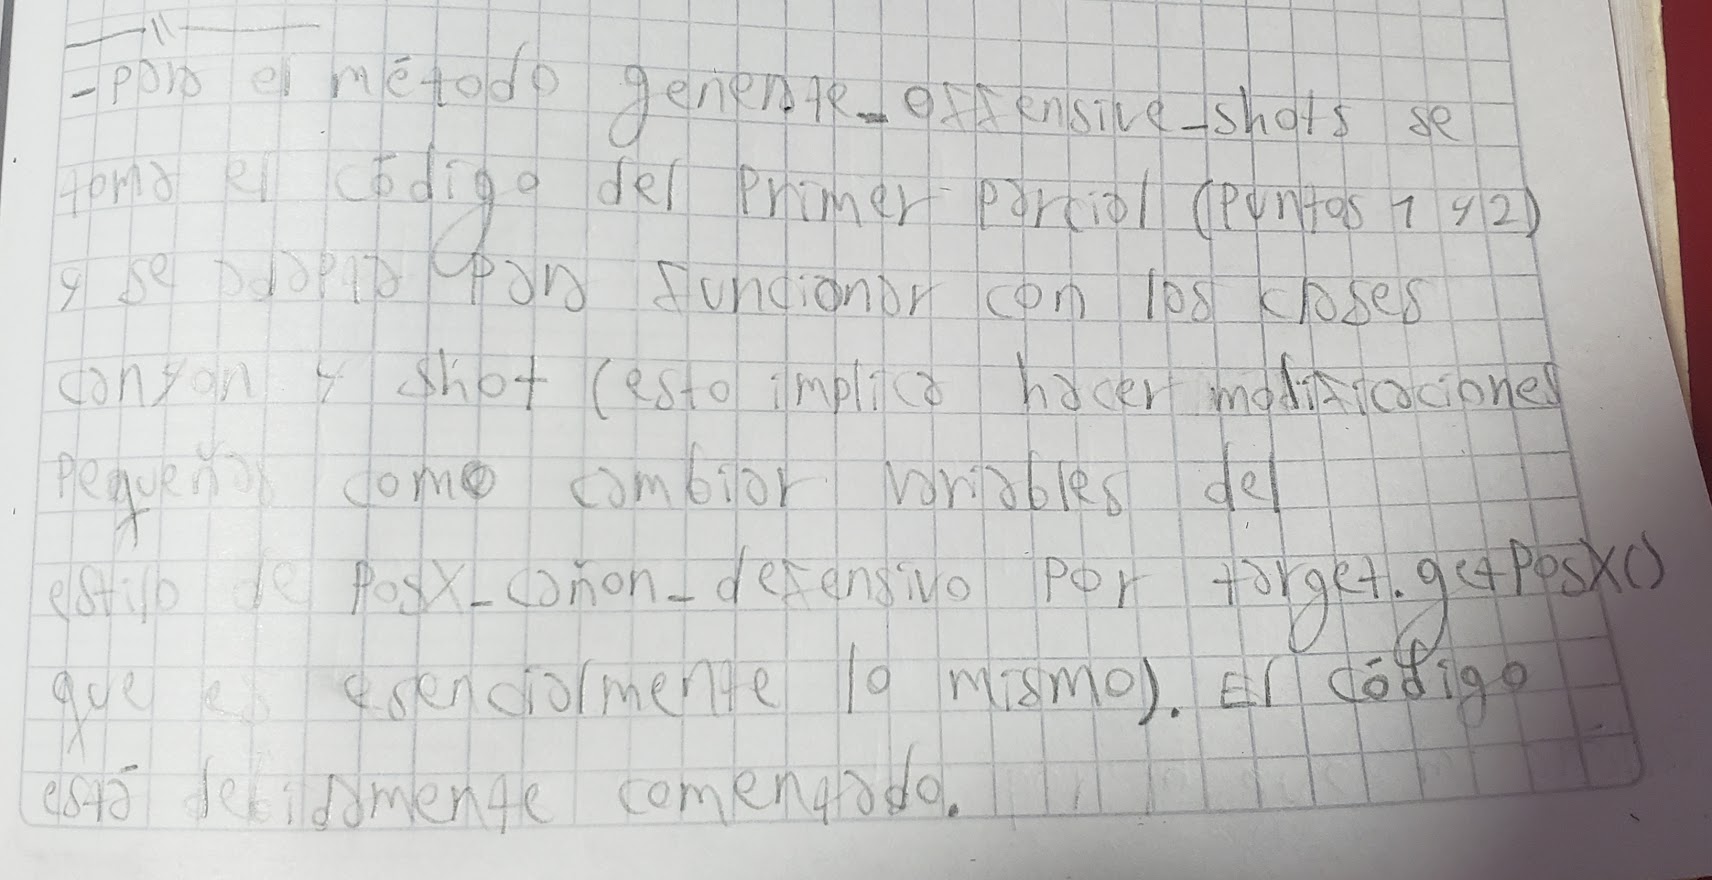 —— " ——
- para el método generate_offensive_shots se
toma el código del primer parcial (puntos 1 y 2)
y se adapta para funcionar con los clases
canyon y shot (esto implica hacer modificaciones
pequeñas como cambiar variables del
estilo de posX_cañon_defensivo por target.getPosX()
que es esencialmente lo mismo). El código
está debidamente comentado.